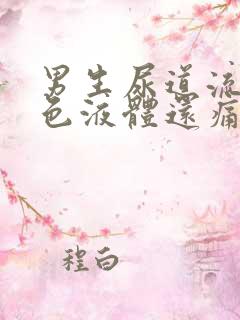 男生尿道流
色液體還痛
程白